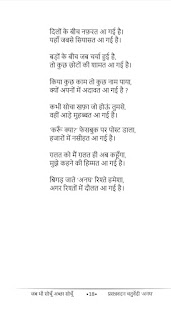 दिलों के बीच नफ़रत आ गई है।
यहाँ जबसे सियासत आ गई है।
बड़ों के बीच जब चर्चा हुई है,
तो कुछ छोटों की शामत आ गई है।
किया कुछ काम तो कुछ नाम पाया,
क्यों अपनों में अदावत आ गई है ?
कभी सोचा खफ़ा जो होऊं तुमसे,
वहीं आड़े मुहब्बत आ गई है।
'करूँ क्या?' फेसबुक पर पोस्ट डाला,
हजारों में नसीहत आ गई है।
गलत को मैं गलत ही अब कहूँगा,
मुझे कहने की हिम्मत आ गई है।
बिगड़ जाते 'अनघ' रिश्ते हमेशा,
अगर रिश्तों में दौलत आ गई है।
जब भी सोचूँ अच्छा सोचूँ •18• प्रवास्तदन चतुर्वेदी 'अनघ'